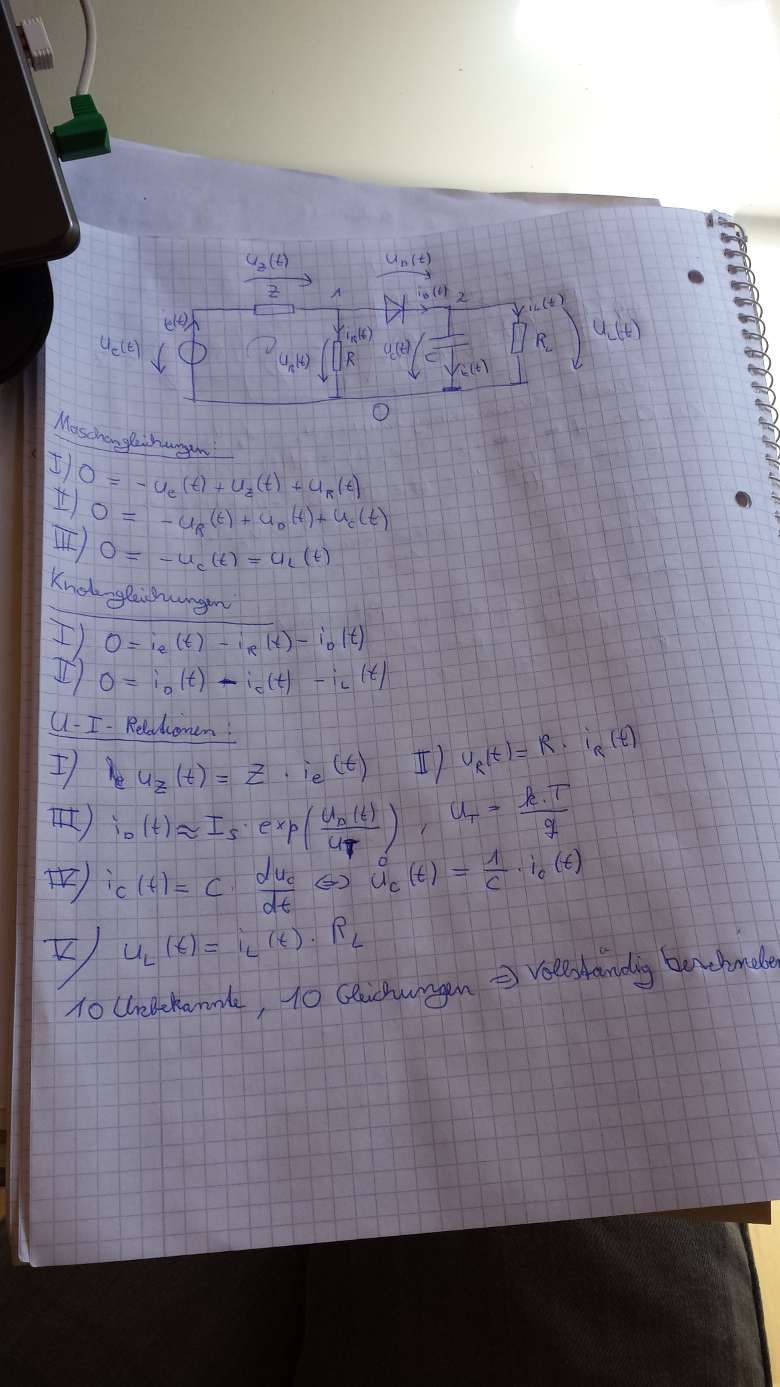 u_Z(t) u_D(t)
Z 1 i_D(t) 2 i_L(t)
i_e(t) i_R(t)
u_e(t) u_R(t) R u_c(t) C R_L u_L(t)
i_c(t)
0
Maschengleichungen:
I) 0 = -u_e(t) + u_Z(t) + u_R(t)
II) 0 = -u_R(t) + u_D(t) + u_c(t)
III) 0 = -u_c(t) = u_L(t)
Knotengleichungen
I) 0 = i_e(t) - i_R(t) - i_D(t)
II) 0 = i_D(t) - i_c(t) - i_L(t)
U-I-Relationen:
I) u_Z(t) = Z · i_e(t) II) u_R(t) = R · i_R(t)
III) i_D(t) ≈ I_S · exp(u_D(t)/u_T), u_T = k·T/q
IV) i_c(t) = C · du_c/dt ⇔ ů_c(t) = 1/C · i_c(t)
V) u_L(t) = i_L(t) · R_L
10 Unbekannte, 10 Gleichungen ⇒ vollständig beschrieben